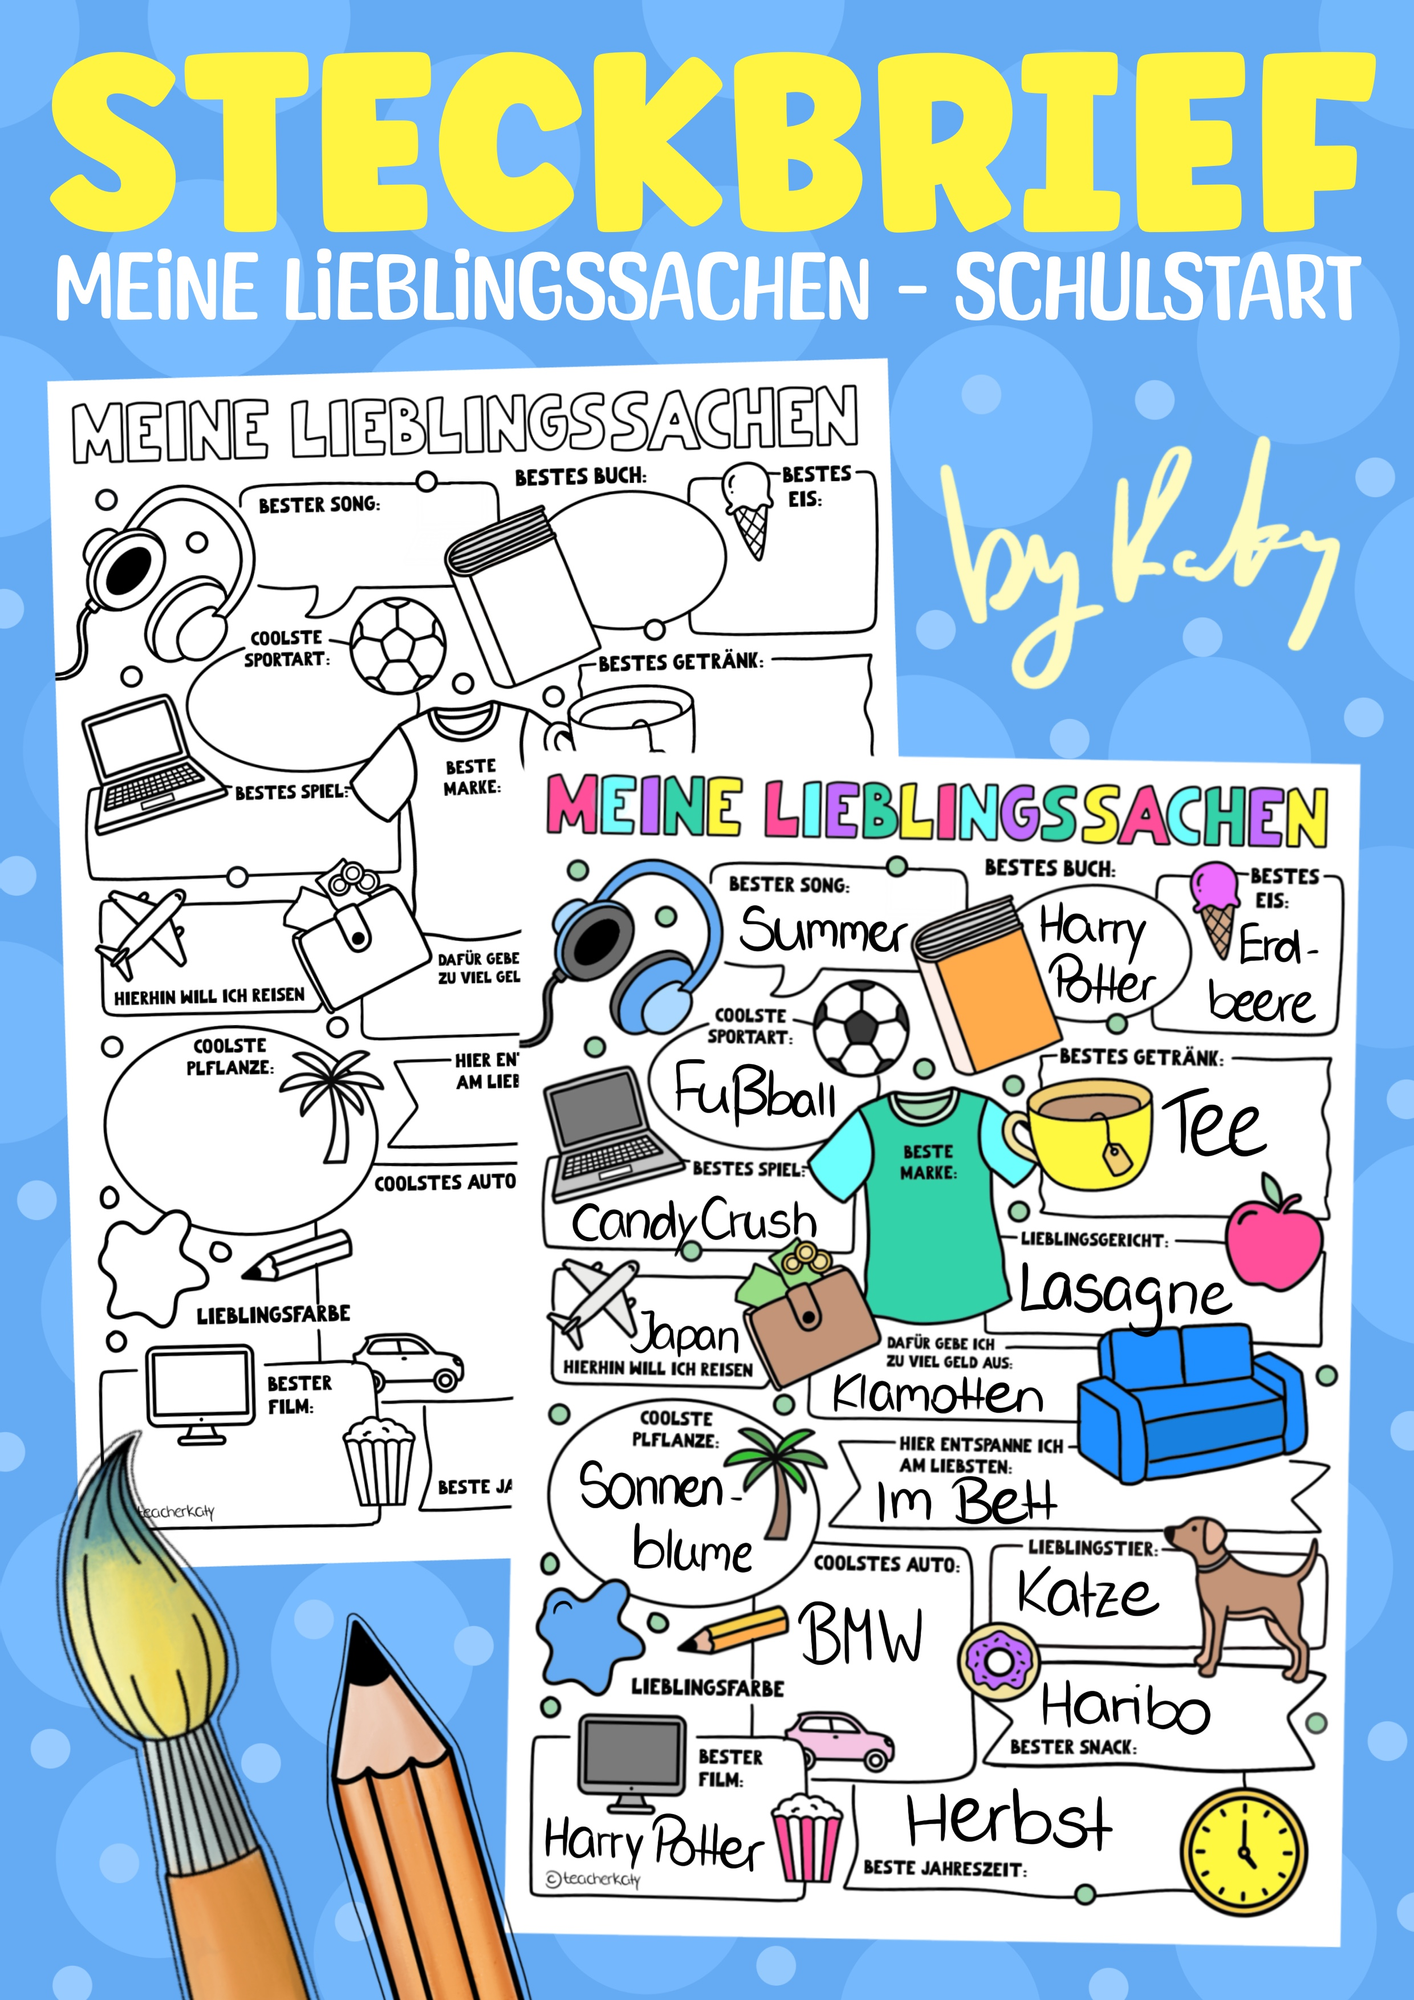 STECKBRIEF
MEiNE LiEBLiNGSSACHEN - SCHULSTART
by Katy
MEINE LIEBLINGSSACHEN
BESTER SONG:
BESTES BUCH:
BESTES
EIS:
COOLSTE
SPORTART:
BESTES GETRÄNK:
BESTES SPIEL:
BESTE
MARKE:
HIERHIN WILL ICH REISEN
DAFÜR GEBE
ZU VIEL GEL
COOLSTE
PLFLANZE:
HIER EN
AM LIEB
COOLSTES AUTO
LIEBLINGSFARBE
BESTER
FILM:
BESTE JA
teacherkaty
MEINE LIEBLINGSSACHEN
BESTER SONG:
Summer
BESTES BUCH:
Harry
Potter
BESTES
EIS:
Erd-
beere
COOLSTE
SPORTART:
Fußball
BESTES GETRÄNK:
Tee
BESTES SPIEL:
CandyCrush
BESTE
MARKE:
LIEBLINGSGERICHT:
Lasagne
Japan
HIERHIN WILL ICH REISEN
DAFÜR GEBE ICH
ZU VIEL GELD AUS:
Klamotten
COOLSTE
PLFLANZE:
Sonnen-
blume
HIER ENTSPANNE ICH
AM LIEBSTEN:
Im Bett
COOLSTES AUTO:
BMW
LIEBLINGSTIER:
Katze
LIEBLINGSFARBE
Haribo
BESTER SNACK:
BESTER
FILM:
Harry Potter
©teacherkaty
Herbst
BESTE JAHRESZEIT: